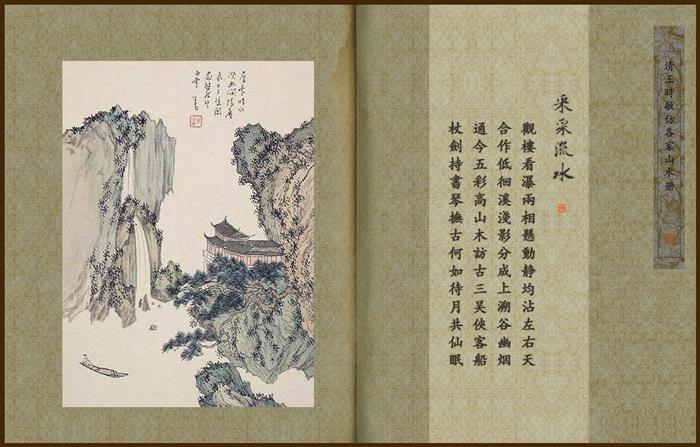 清王時敏仿各家山水册
采采流水
觀樓看瀑兩相懸動静均沾左右天
合作低徊溪淺影分成上溯谷幽烟
通今五彩高山木訪古三吴俠客船
杖劍持書琴撫古何如待月共仙眠